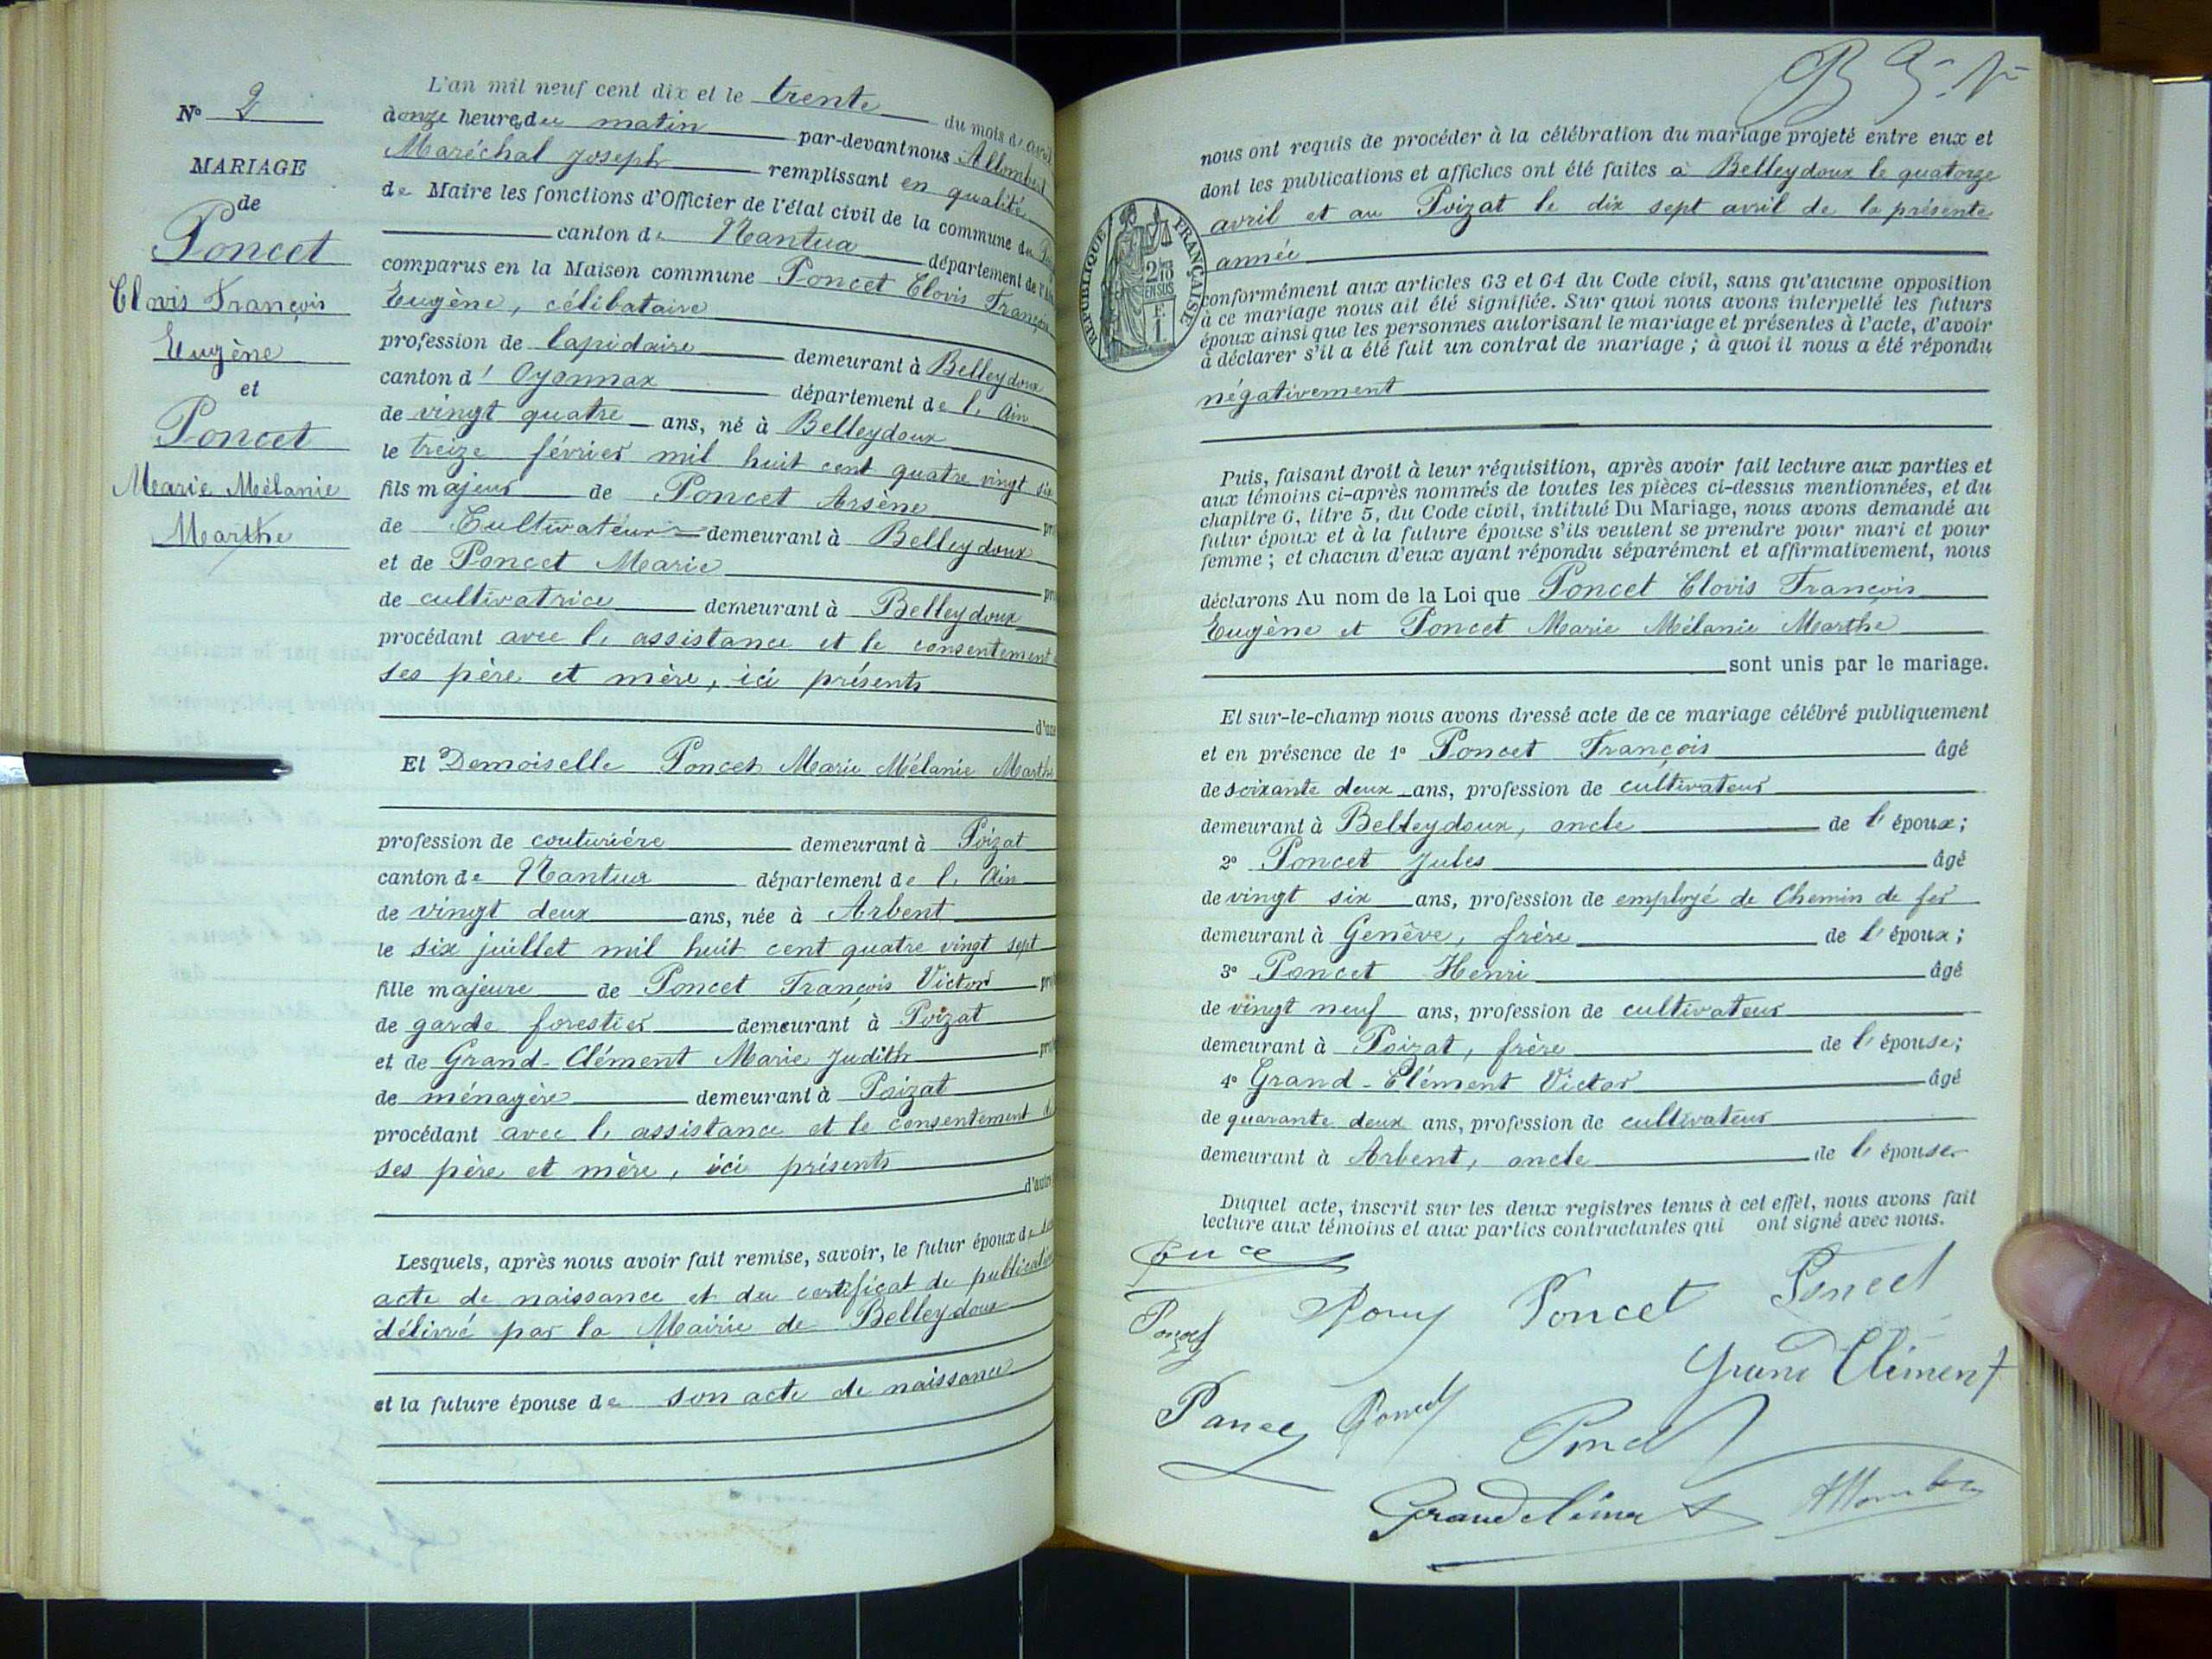 L'an mil neuf cent dix et le trente du mois de avril
N° 2
à onze heures du matin par-devant nous Allombert
Maréchal Joseph remplissant en qualité
MARIAGE
de Maire les fonctions d'Officier de l'état civil de la commune du
de
canton de Nantua département de l'Ain
Poncet
comparus en la Maison commune Poncet Clovis François
Clovis François
Eugène, célibataire
Eugène
profession de lapidaire demeurant à Belleydoux
et
canton d'Oyonnax département de l'Ain
Poncet
de vingt quatre ans, né à Belleydoux
le treize février mil huit cent quatre vingt six
Marie Mélanie
fils majeur de Poncet Arsène
Marthe
de Cultivateur demeurant à Belleydoux
et de Poncet Marie
de cultivatrice demeurant à Belleydoux
procédant avec l'assistance et le consentement
ses père et mère, ici présents
d'une
Et Demoiselle Poncet Marie Mélanie Marthe
profession de couturière demeurant à Poizat
canton de Nantua département de l'Ain
de vingt deux ans, née à Arbent
le six juillet mil huit cent quatre vingt sept
fille majeure de Poncet François Victor
de garde forestier demeurant à Poizat
et de Grand-Clément Marie Judith
de ménagère demeurant à Poizat
procédant avec l'assistance et le consentement de
ses père et mère, ici présents
d'autre
Lesquels, après nous avoir fait remise, savoir, le futur époux de son
acte de naissance et du certificat de publication
délivré par la Mairie de Belleydoux
et la future épouse de son acte de naissance
nous ont requis de procéder à la célébration du mariage projeté entre eux et
dont les publications et affiches ont été faites à Belleydoux le quatorze
avril et au Poizat le dix sept avril de la présente
année
RÉPUBLIQUE FRANÇAISE
conformément aux articles 63 et 64 du Code civil, sans qu'aucune opposition
à ce mariage nous ait été signifiée. Sur quoi nous avons interpellé les futurs
époux ainsi que les personnes autorisant le mariage et présentes à l'acte, d'avoir
à déclarer s'il a été fait un contrat de mariage ; à quoi il nous a été répondu
négativement
Puis, faisant droit à leur réquisition, après avoir fait lecture aux parties et
aux témoins ci-après nommés de toutes les pièces ci-dessus mentionnées, et du
chapitre 6, titre 5, du Code civil, intitulé Du Mariage, nous avons demandé au
futur époux et à la future épouse s'ils veulent se prendre pour mari et pour
femme ; et chacun d'eux ayant répondu séparément et affirmativement, nous
déclarons Au nom de la Loi que Poncet Clovis François
Eugène et Poncet Marie Mélanie Marthe
sont unis par le mariage.
Et sur-le-champ nous avons dressé acte de ce mariage célébré publiquement
et en présence de 1° Poncet François âgé
de soixante deux ans, profession de cultivateur
demeurant à Belleydoux, oncle de l'époux ;
2° Poncet Jules âgé
de vingt six ans, profession de employé de Chemin de fer
demeurant à Genève, frère de l'époux ;
3° Poncet Henri âgé
de vingt neuf ans, profession de cultivateur
demeurant à Poizat, frère de l'épouse ;
4° Grand-Clément Victor âgé
de quarante deux ans, profession de cultivateur
demeurant à Arbent, oncle de l'épouse
Duquel acte, inscrit sur les deux registres tenus à cet effet, nous avons fait
lecture aux témoins et aux parties contractantes qui ont signé avec nous.
Poncet Poncet
Poncet
Grand Clément
Poncet Poncet
Poncet
Grand Clément Allombert